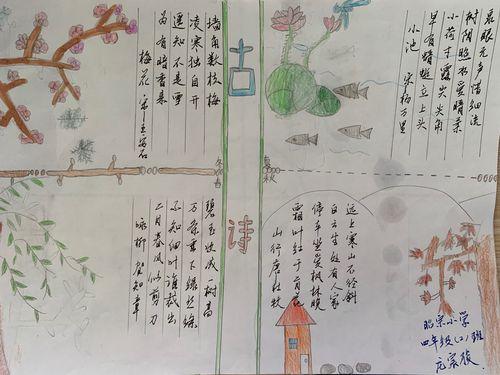 古
诗
墙角数枝梅
凌寒独自开
遥知不是雪
为有暗香来
梅花 宋 王安石
泉眼无声惜细流
树阴照水爱晴柔
小荷才露尖尖角
早有蜻蜓立上头
小池 宋 杨万里
冬春
夏秋
碧玉妆成一树高
万条垂下绿丝绦
不知细叶谁裁出
二月春风似剪刀
咏柳 贺知章
远上寒山石径斜
白云生处有人家
停车坐爱枫林晚
霜叶红于二月花
山行 唐 杜牧
小学
四年级(2)班